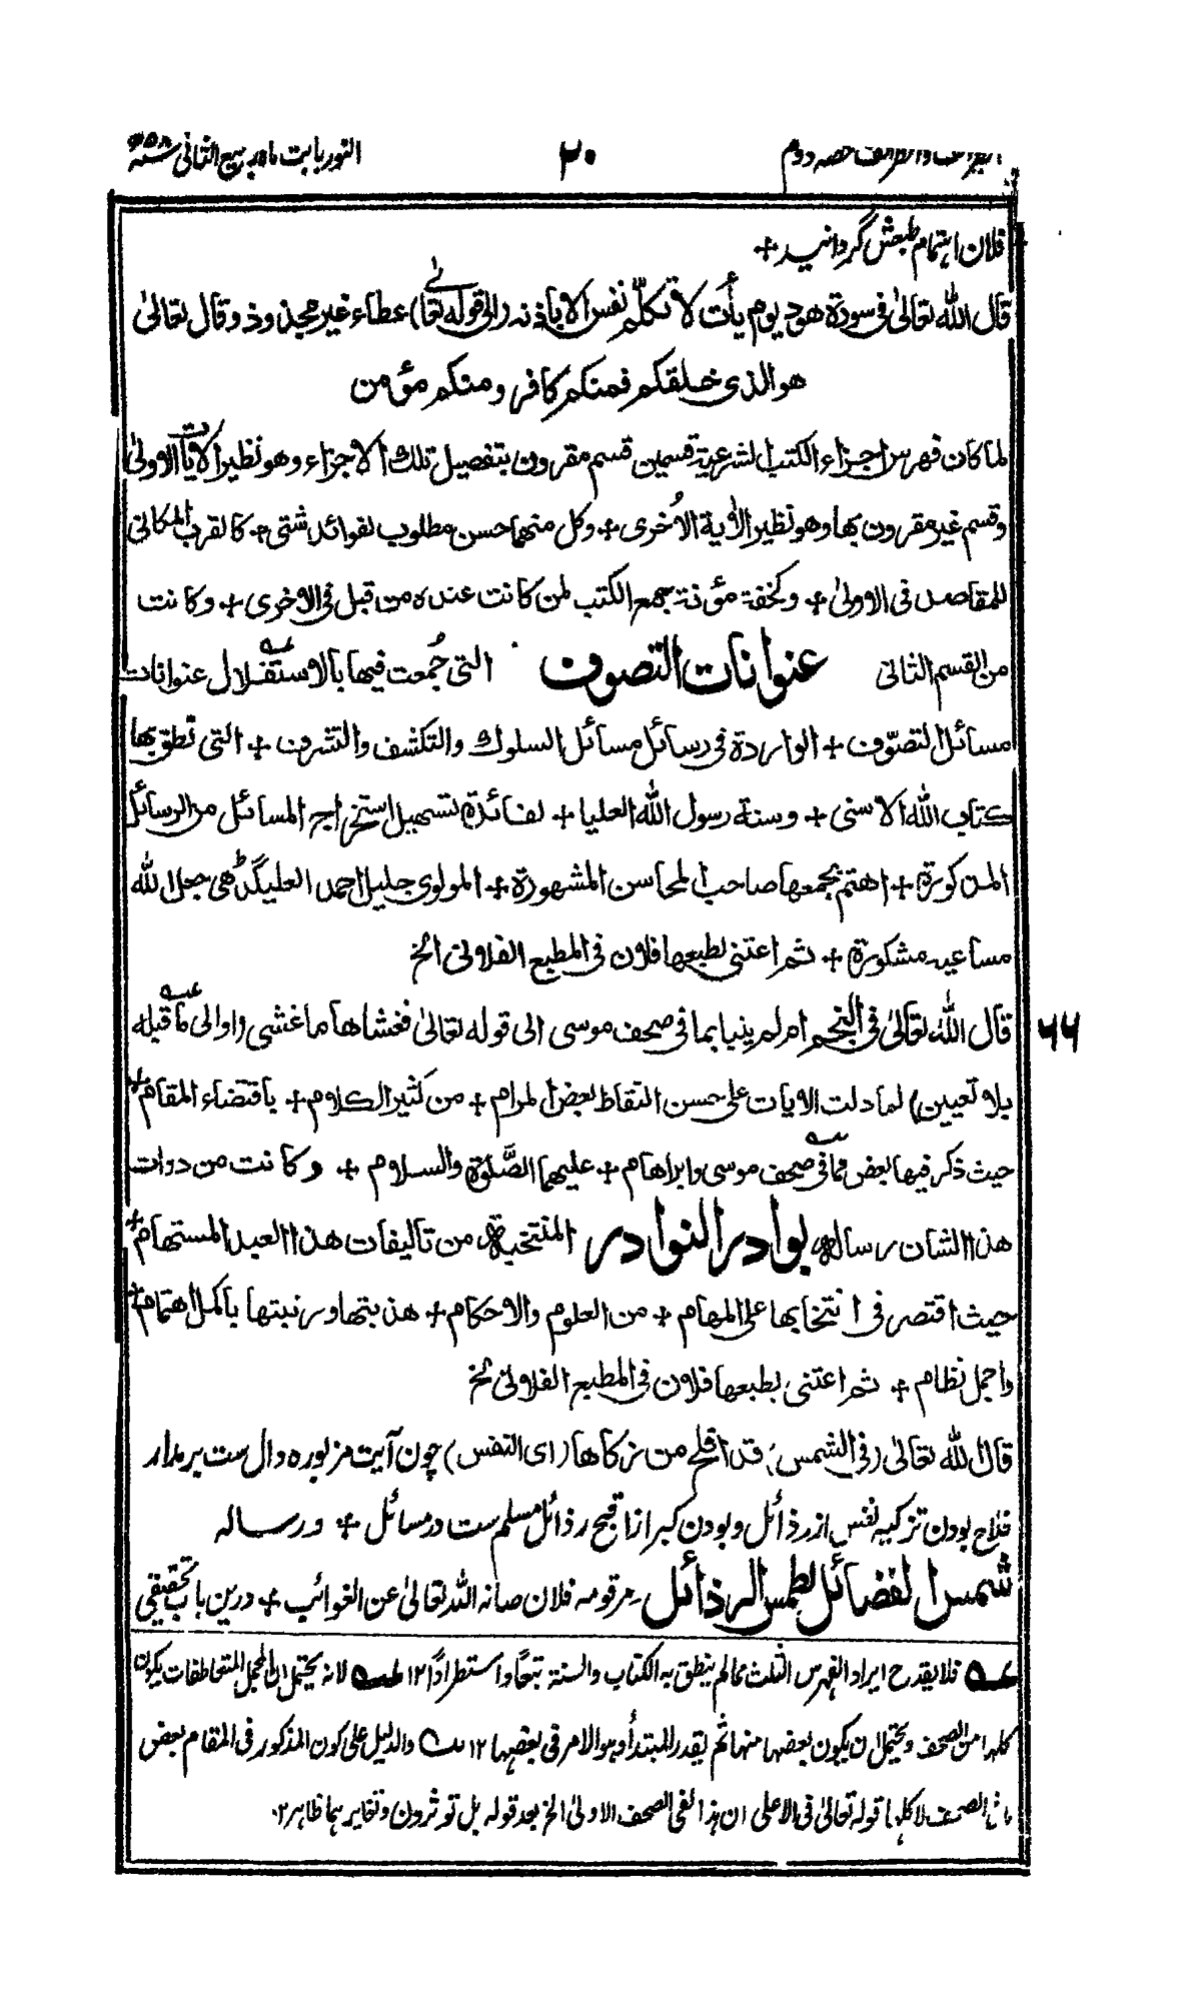 النور بابت ماه ربیع الثانی ۲۰ حصہ دوم
فلان اہتمام طبعش گردانید +
قال الله تعالیٰ فی سورة هود یوم یأت لا تکلّم نفس الا باذنه (الی قوله تعالیٰ) عطاء غیر مجذوذ وقال تعالیٰ
هو الذی خلقکم فمنکم کافر ومنکم مؤمن
لما کان فهرس اجزاء الکتب الشرعیة قسمین قسم مقرون بتفصیل تلک الاجزاء وهو نظیر الآیات الاولیٰ
وقسم غیر مقرون بها وهو نظیر الآیة الاُخری + وکل منهما حسن مطلوب لفوائد شتی + کالقرب المکانی
للمقاصد فی الاولیٰ + وکخفة مؤنة جمع الکتب لمن کانت عنده من قبل فی الاخری + وکانت
من القسم الثانی عنوانات التصوف التی جُمعت فیها بالاستقلال عنوانات
مسائل التصوّف + الواردة فی رسائل مسائل السلوک والتکشف والتشرف + التی نطق بها
کتاب الله الاسنی + وسنة رسول الله العلیا + لفائدة تسهیل استخراج المسائل من الرسائل
المذکورة + اهتم بجمعها صاحب المحاسن المشهورة + المولوی جلیل احمد العلیگڑھی جعل الله
مساعیه مشکورة + ثم اعتنی بطبعها فلان فی المطبع الفلانی الخ
قال الله تعالیٰ فی النجم ام لم ینبا بما فی صحف موسی الی قوله تعالیٰ فغشاها ما غشی (اوالی ما قبله
بلا تعیین) لما دلت الایات علی حسن التقاط بعض المرام + من کثیر الکلام + باقتضاء المقام +
حیث ذکر فیها بعض مما فی صحف موسی وابراهام + علیهما الصَّلوٰة والسلام + وکانت من دوات
هذا الشان رسالة بوادر النوادر المنتخبة من تالیفات هذا العبد المستهام +
حیث اقتصر فی انتخابها علی المهام + من العلوم والاحکام + هذبتها ورتبتها باکمل اهتمام +
واجمل نظام + ثم اعتنی بطبعها فلان فی المطبع الفلانی الخ
۶۶
قال الله تعالیٰ (فی الشمس) قد افلح من زکاها (ای النفس) چون آیت مزبوره دال ست بر مدار
فلاح بودن تزکیہ نفس از رذائل و بودن کبر از اقبح رذائل مسلم ست در مسائل + و رسالہ
شمس الفضائل لطمس الرذائل مرقومہ فلان صانہ اللہ تعالیٰ عن الغوائب + درین باب تحقیقی
فلا یقدح ایراد الفہرس الثلث مما لم ینطق به الکتاب والسنة تبعًا واستطرادًا ۱۲ لانہ یحتمل ان الجمل المتعاطفات یکون
کلہا من الصحف ویحتمل ان یکون بعضہا منہا ثم یقدر المبتدأ وہو الامر فی بعضہا ۱۲ والدلیل علی کون المذکور فی المقام بعض
ما فی الصحف لا کلہا قولہ تعالیٰ فی الاعلی ان ہذا لفی الصحف الاولیٰ الخ بعد قولہ بل توثرون وتغایرہما ظاہر ۱۲